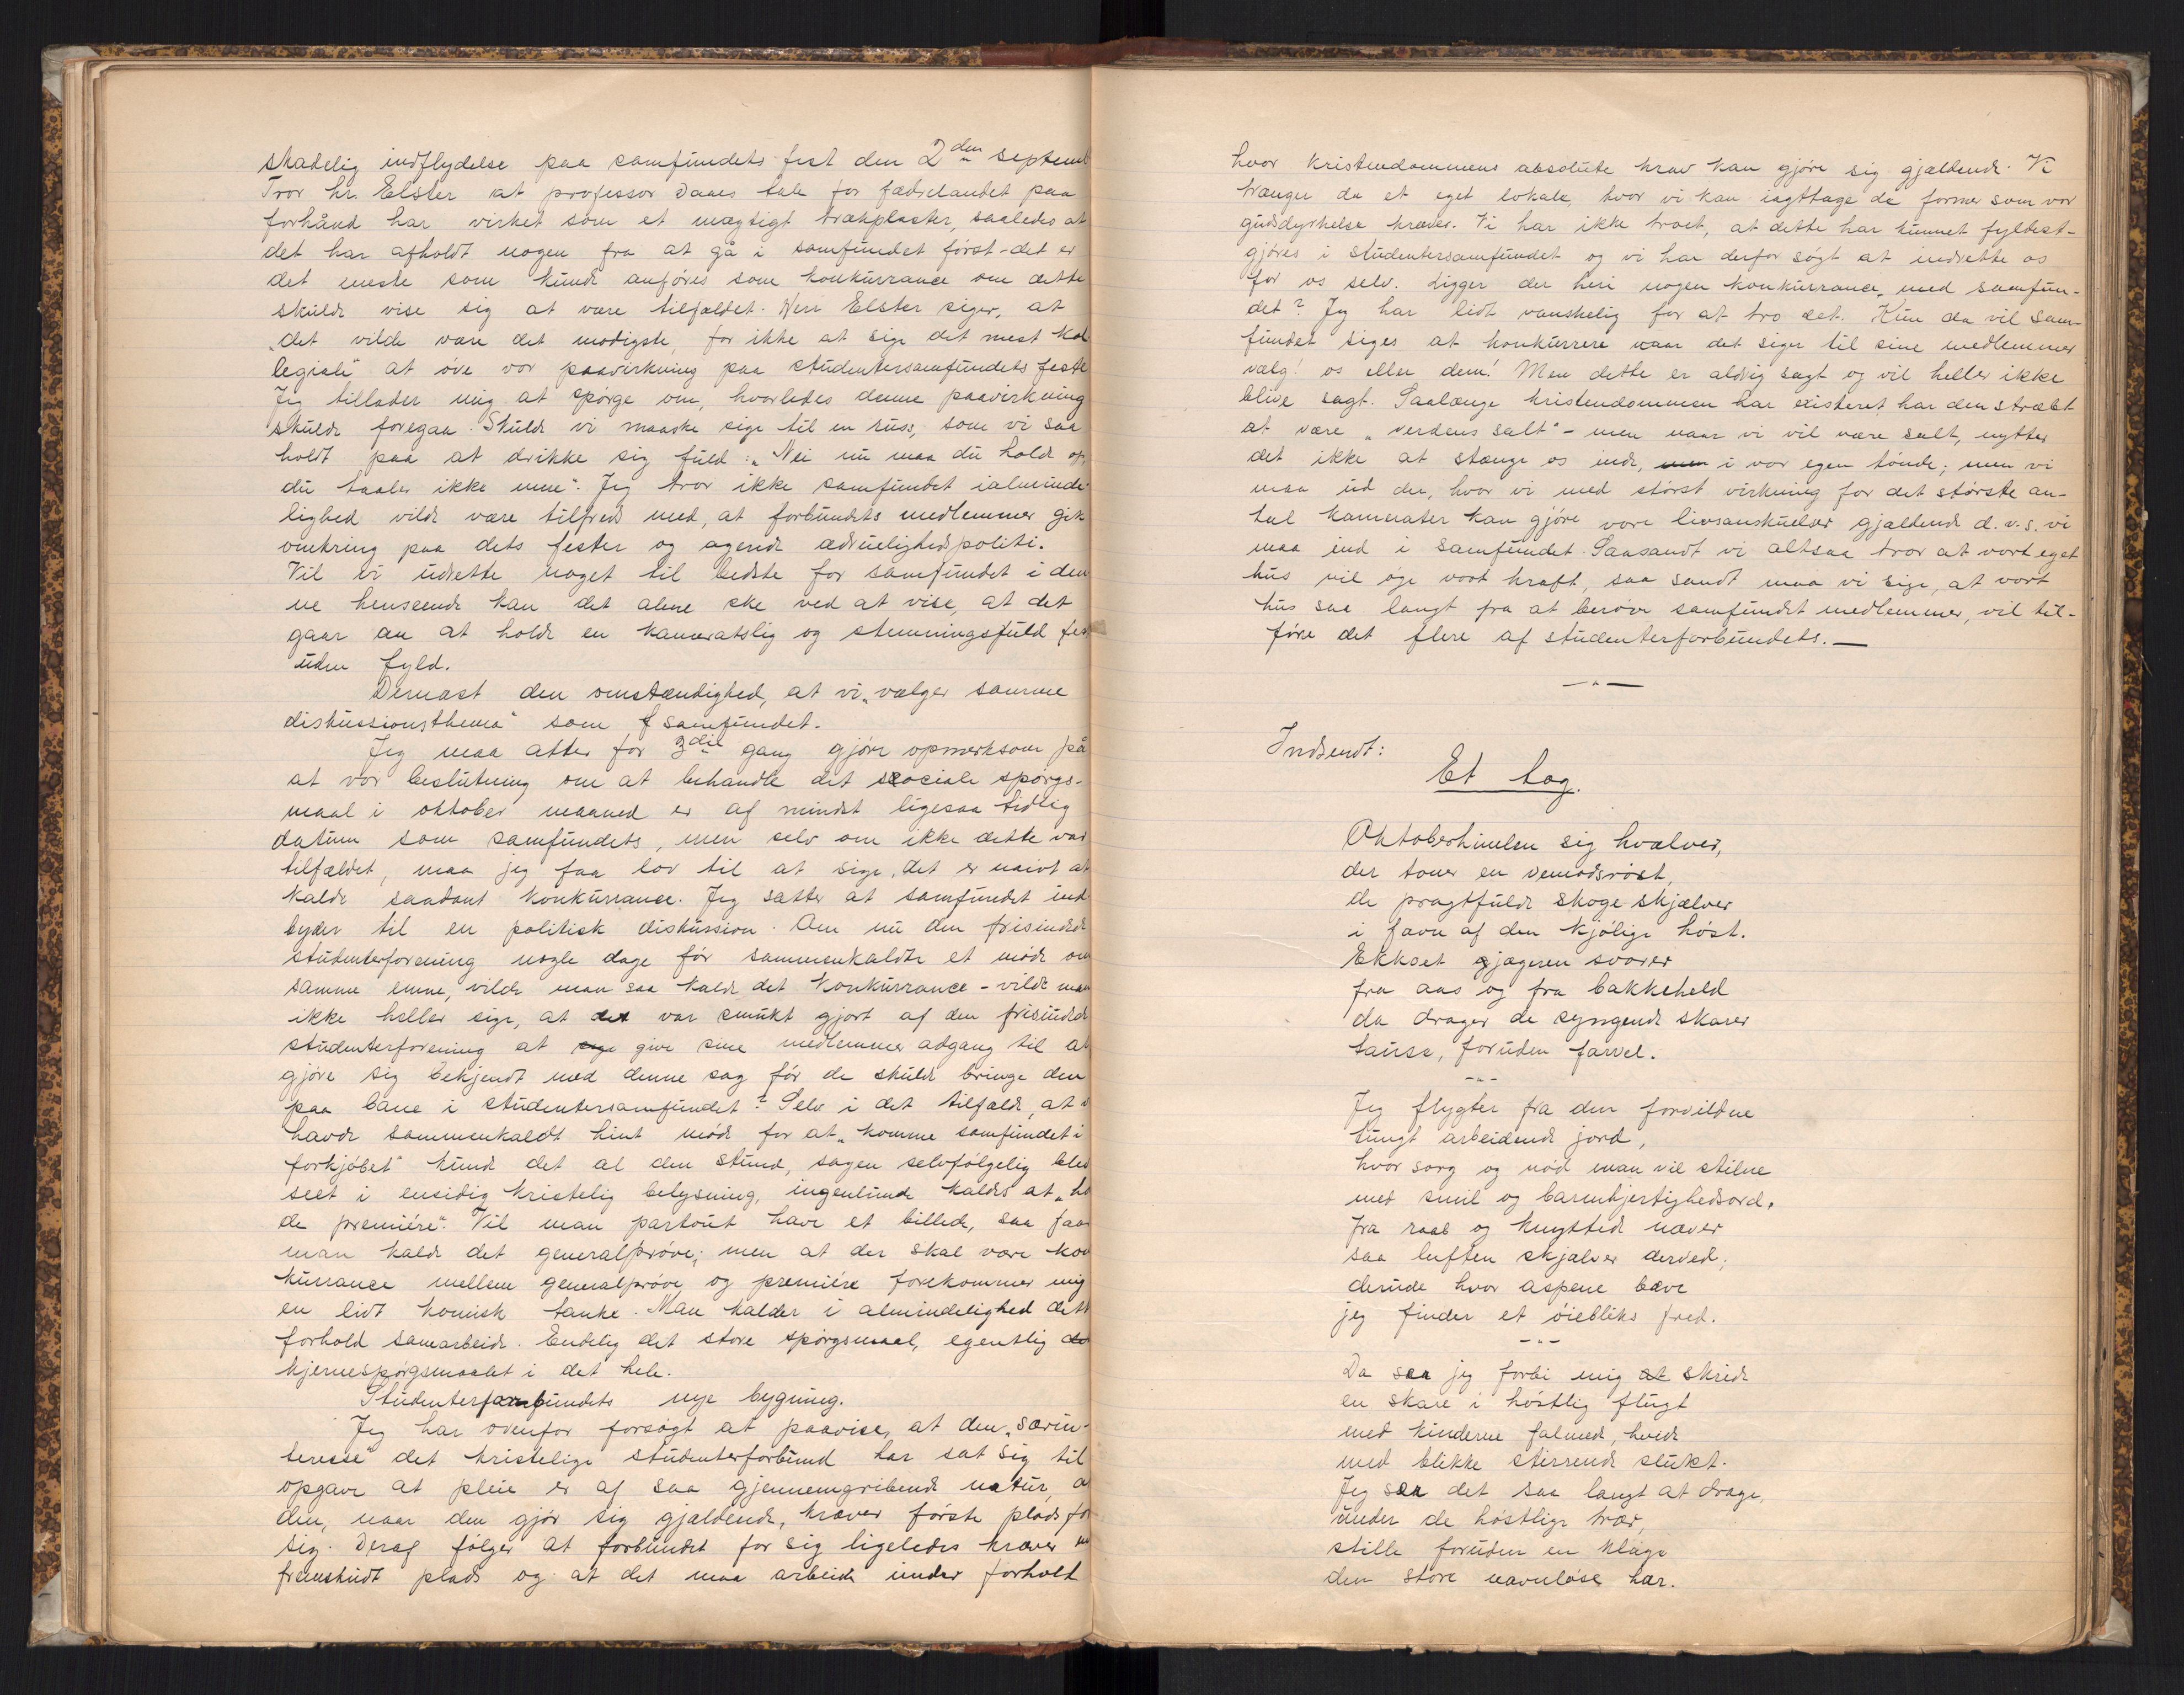 skadelig indflydelse paa samfundets fest den 2den septemb
Tror hr. Elster at professor Daaes tale for fædrelandet paa
forhånd har virket som et mægtigt trækplaster, saaledes at
det har afholdt nogen fra at gå i samfundet først - det er
det eneste som kunde anføres som konkurrance om dette
skulde vise sig at være tilfældet. Herr Elster siger, at
„det vilde være det modigste, for ikke at sige det mest kol
legiale" at øve vor paavirkning paa studentersamfundets feste
Jeg tillader mig at spørge om, hvorledes denne paavirkning
skulde foregaa. Skulde vi maaske sige til en russ, som vi saa
holdt paa at drikke sig fuld: „Nei nu maa du holde op,
du taaler ikke mere". Jeg tror ikke samfundet ialminde-
lighed vilde være tilfreds med, at forbundets medlemmer gik
omkring paa dets fester og agerede ædruelighedspoliti.
Vil vi udrette noget til bedste for samfundet i den
ne henseende kan det alene ske ved at vise, at det
gaar an at holde en kameratslig og stemningsfuld fes
uden fyld.
Dernæst den omstændighed, at vi „vælger samme
diskussionsthema" som samfundet.
Jeg maa atter for 3die gang gjøre opmerksom på
at vor beslutning om at behandle det sociale spørgs-
maal i oktober maaned er af mindst ligesaa tidlig
datum som samfundets, men selv om ikke dette var
tilfældet, maa jeg faa lov til at sige, det er naivt at
kalde saadant konkurrance. Jeg sætter at samfundet ind
byder til en politisk diskussion. Om nu den frisindede
studenterforening nogle dage før sammenkaldte et møde om
samme emne, vilde man saa kalde det konkurrance - vilde man
ikke heller sige, at det var smukt gjort af den frisindede
studenterforening at give sine medlemmer adgang til at
gjøre sig bekjendt med denne sag før de skulde bringe den
paa bane i studentersamfundet? Selv i det tilfælde, at v
havde sammenkaldt hint møde for at „komme samfundet i
forkjøbet" kunde det al den stund, sagen selvfølgelig blev
seet i ensidig kristelig belysning, ingenlunde kaldes at „ho
de première". Vil man partout have et billede, saa faar
man kalde det generalprøve; men at der skal være kon
kurrance mellem generalprøve og première forekommer mig
en lidt komisk tanke. Man kalder i almindelighed dett
forhold samarbeide. Endelig det store spørgsmaal, egentlig de
kjernespørgsmaalet i det hele.
Studenterforbundets nye bygning.
Jeg har ovenfor forsøgt at paavise, at den „særin-
teresse" det kristelige studenterforbund har sat sig til
opgave at pleie er af saa gjennemgribende natur, at
den, naar den gjør sig gjældende, kræver første plads for
sig. Deraf følger at forbundet for sig ligeledes kræver en
fremskudt plads og at det maa arbeide under forhold
hvor kristendommens absolute krav kan gjøre sig gjældende. Vi
trænger da et eget lokale, hvor vi kan iagttage de former som vor
gudsdyrkelse kræver. Vi har ikke troet, at dette har kunnet fyldest-
gjøres i studentersamfundet og vi har derfor søgt at indrette os
for os selv. Ligger der heri nogen konkurrance med samfun-
det? Jeg har lidt vanskelig for at tro det. Kun da vil sam-
fundet siges at konkurrere naar det siger til sine medlemmer
vælg! os eller dem! Men dette er aldrig sagt og vil heller ikke
blive sagt. Saalænge kristendommen har existeret har den stræbt
at være „verdens salt" - men naar vi vil være salt, nytter
det ikke at stænge os inde, men i vor egen tønde; men vi
maa ud der, hvor vi med størst virkning for det største an-
tal kamerater kan gjøre vore livsanskuelser gjældende d.v.s. vi
maa ind i samfundet. Saasandt vi altsaa tror at vort eget
hus vil øge vort kraft, saa sandt maa vi sige, at vort
hus saa langt fra at berøve samfundet medlemmer, vil til-
føre det flere af studenterforbundets. —
Indsendt:
Et tog.
Oktoberhimlen sig hvælver,
der toner en vemodsrøst,
de pragtfulde skoge skjælver
i favn af den kjølige høst.
Ekkoet jægeren svarer
fra aas og fra bakkeheld
da drager de syngende skarer
tause, foruden farvel.
Jeg flygter fra den forvildne
tungt arbeidende jord,
hvor sorg og nød man vil stilne
med smil og barmhjertighedsord,
fra raab og knyttede næver
saa luften skjælver derved;
derude hvor aspene bæve
jeg finder et øiebliks fred.
Da saa jeg forbi mig at skride
en skare i høstlig flugt
med kinderne falmede, hvide
med blikke stirrende slukt.
Jeg saa det saa langt at drage,
under de høstlige trær,
stille foruden en klage
den store navnløse hær.